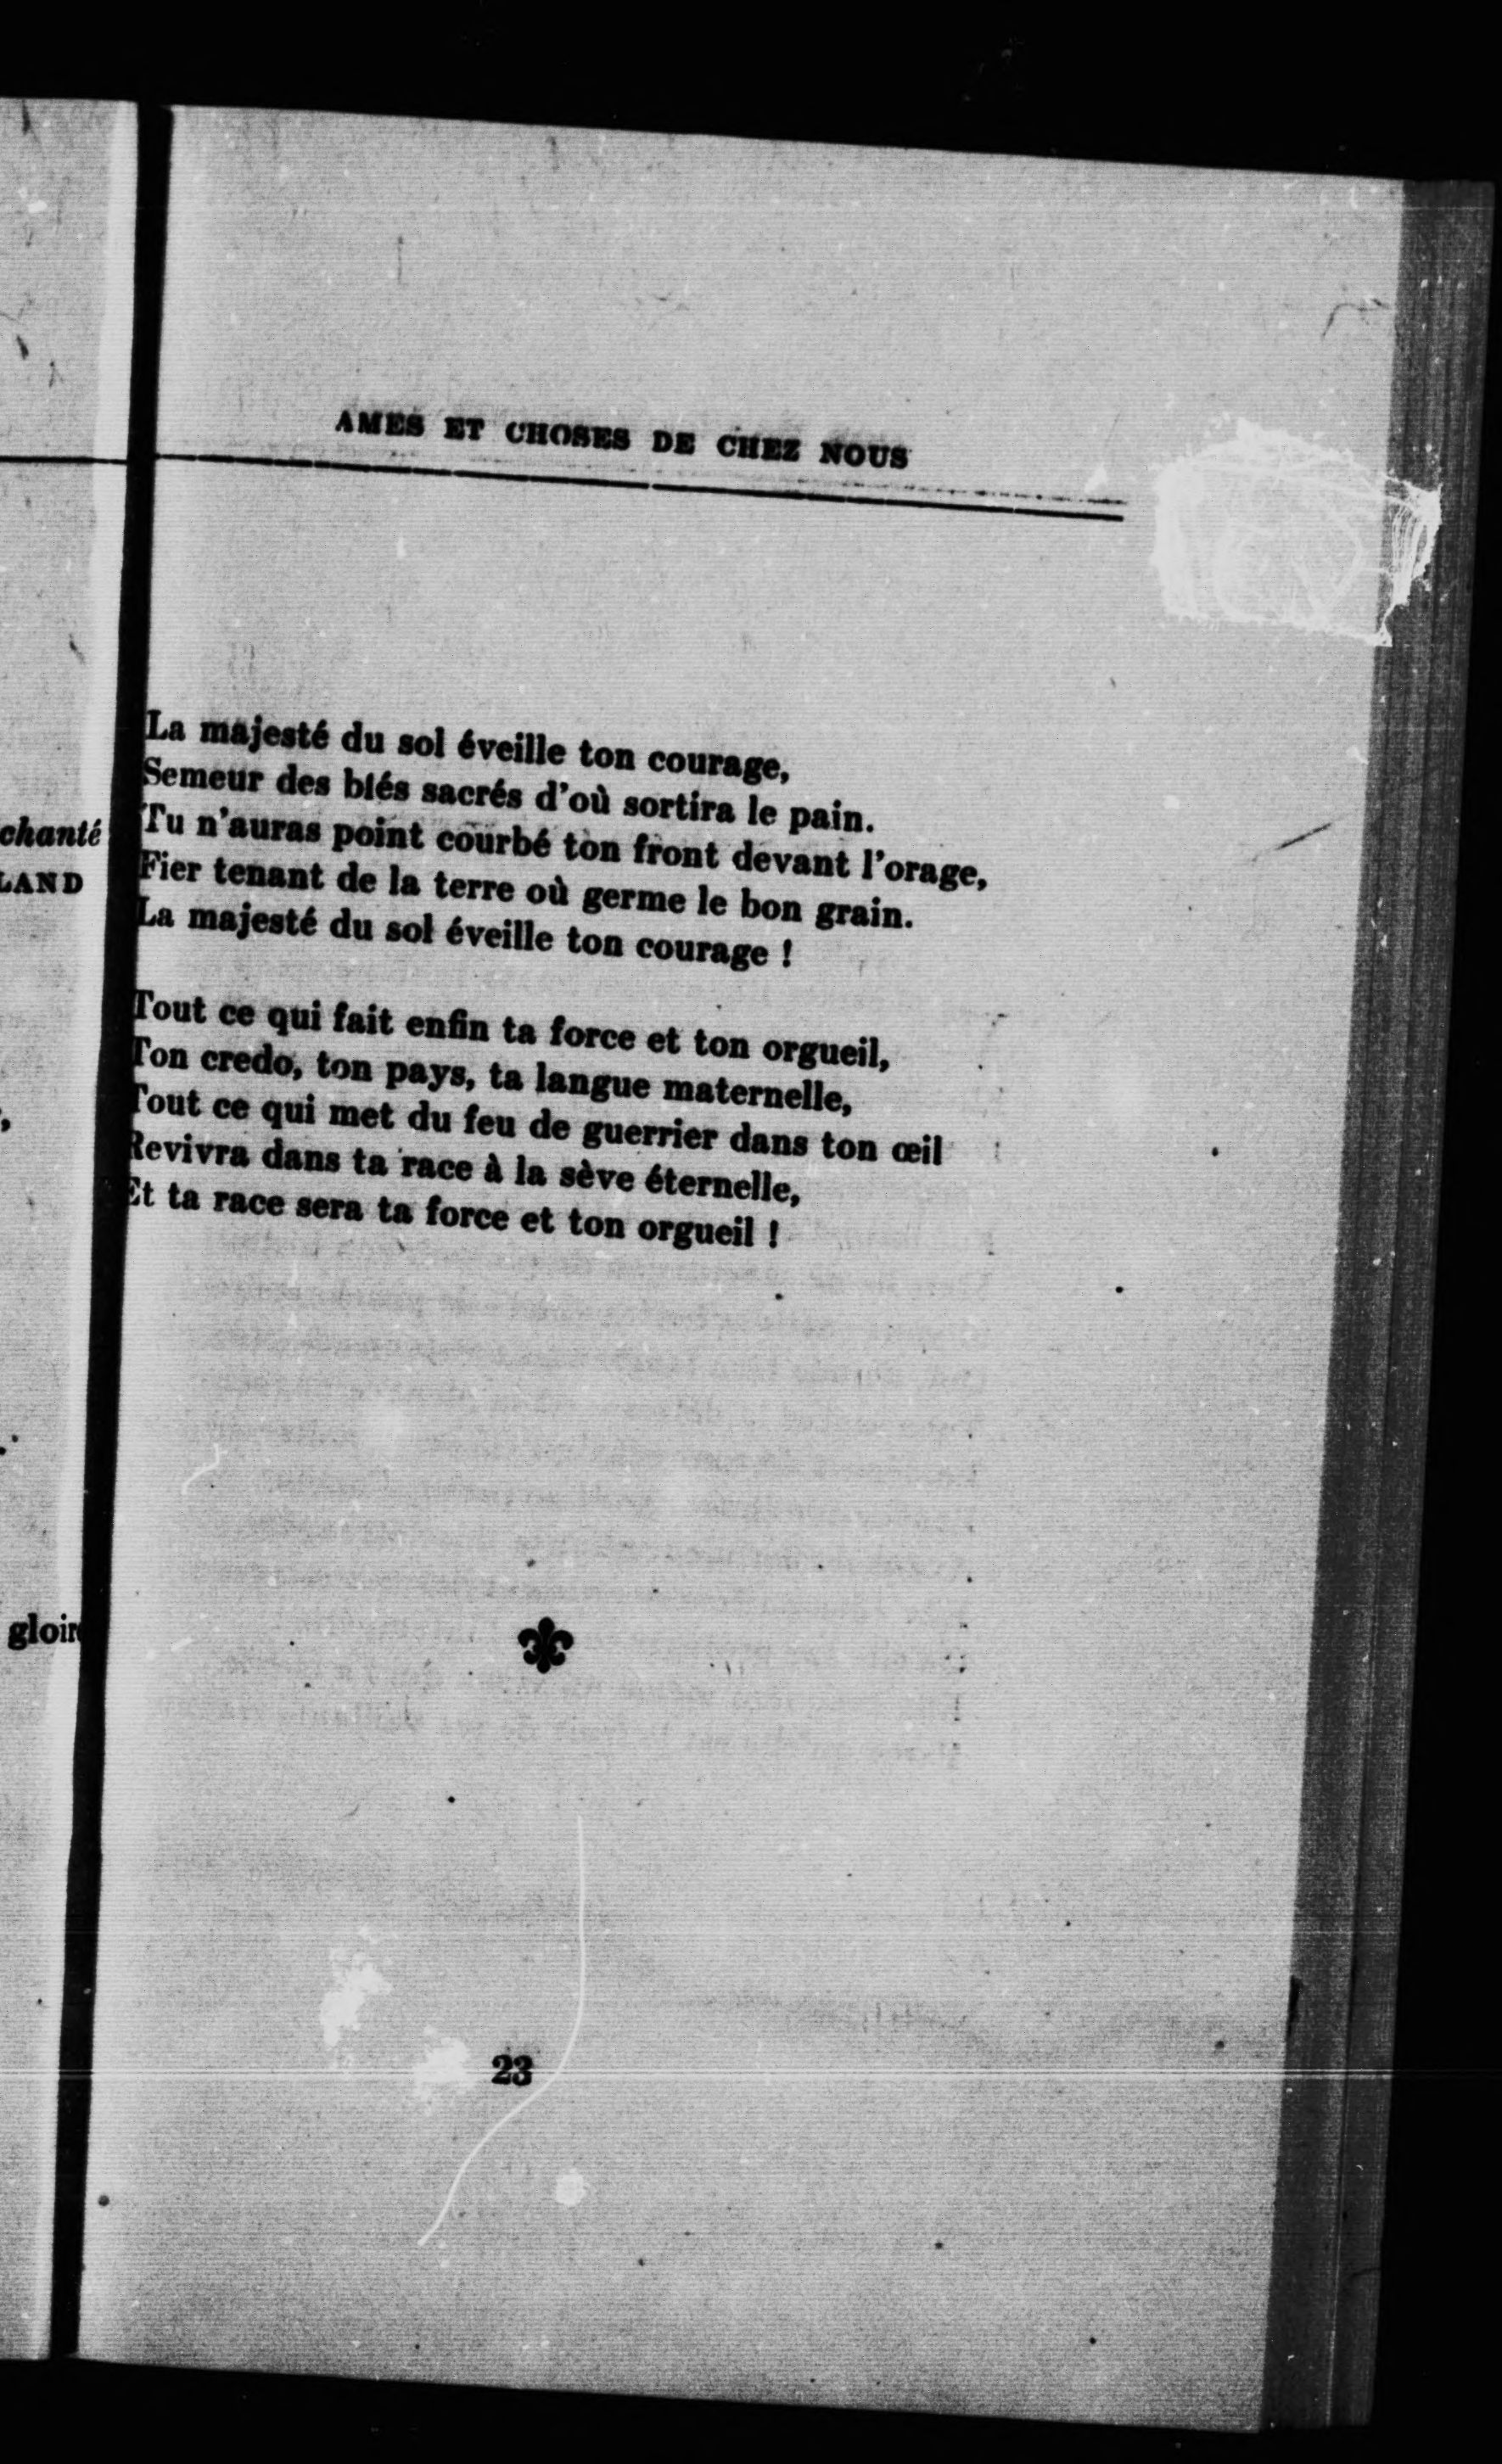 AMES ET CHOSES DE CHEZ NOUS
La majesté du sol éveille ton courage,
Semeur des blés sacrés d'où sortira le pain.
Tu n'auras point courbé ton front devant l'orage,
Fier tenant de la terre où germe le bon grain.
La majesté du sol éveille ton courage !
Tout ce qui fait enfin ta force et ton orgueil,
Ton credo, ton pays, ta langue maternelle,
Tout ce qui met du feu de guerrier dans ton œil
Revivra dans ta race à la sève éternelle,
Et ta race sera ta force et ton orgueil !
23
chanté
LAND
gloire